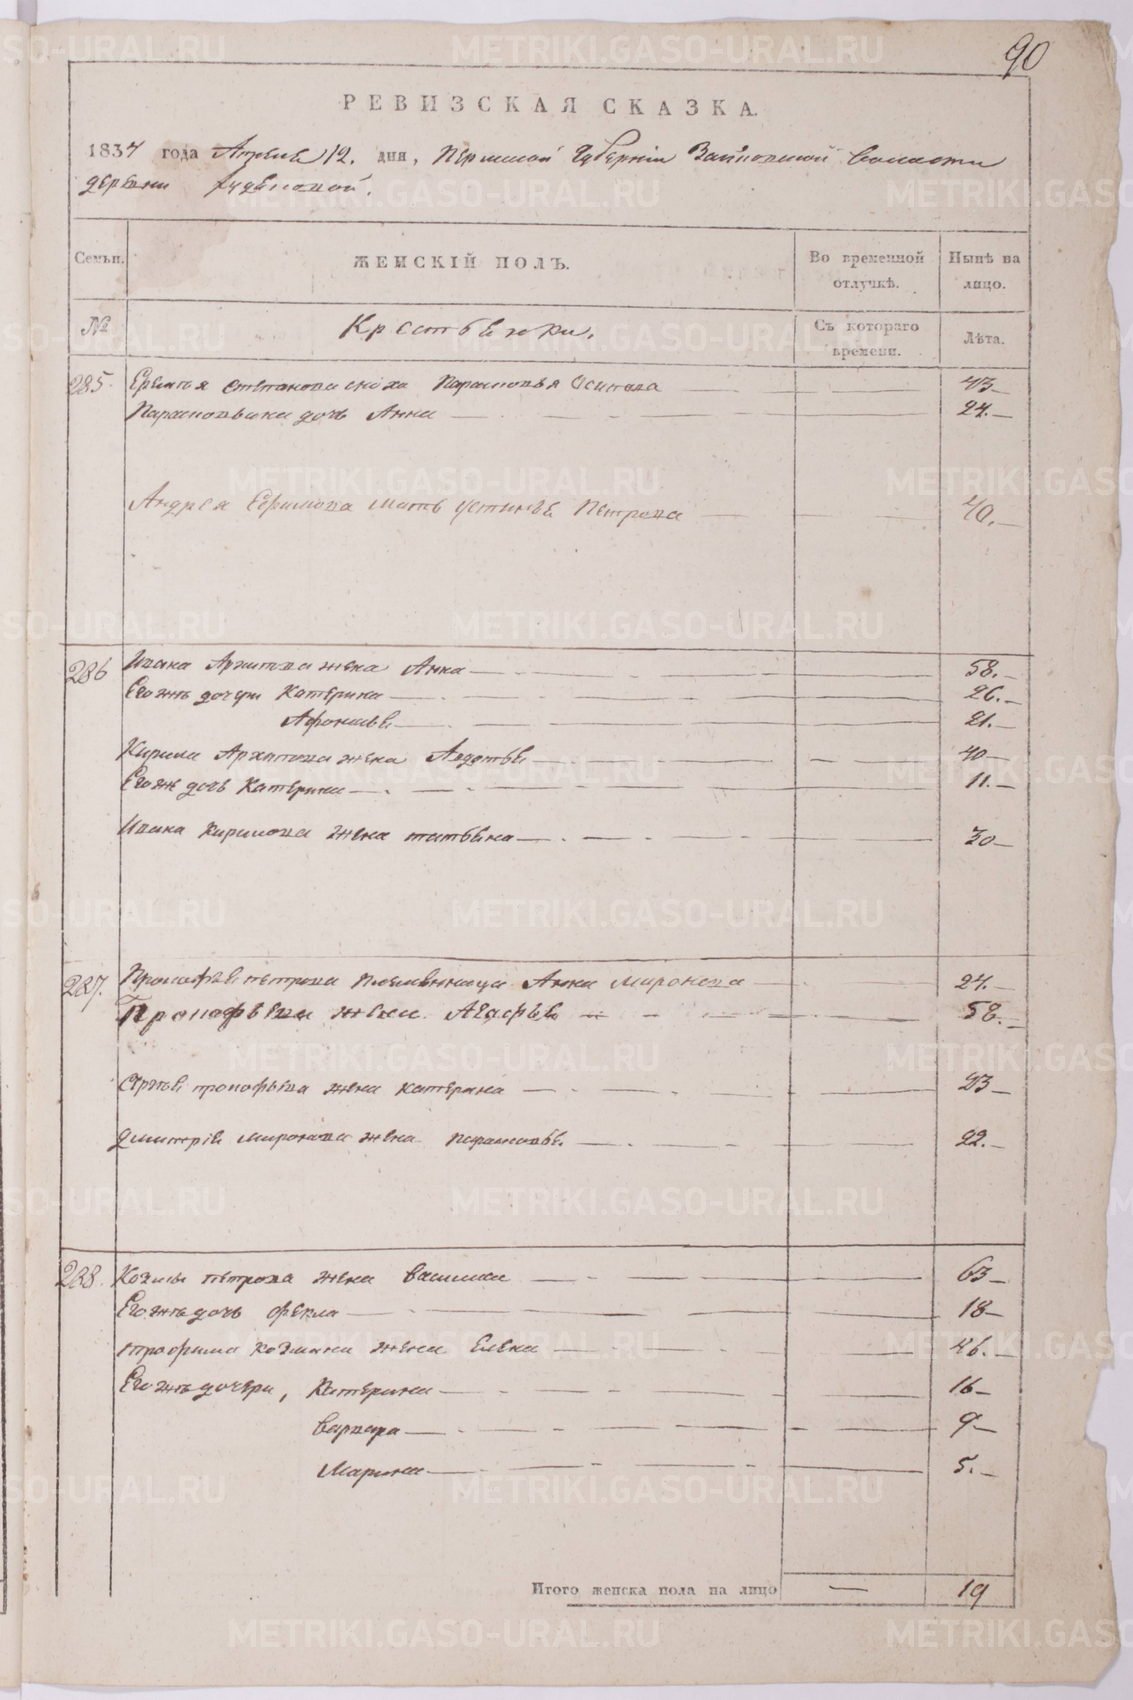 90
РЕВИЗСКАЯ СКАЗКА.
1834 года Апреля 12. дня, Пермской Губернiи Волости
деревни
Семьи. ЖЕНСКІЙ ПОЛЪ. Во временной отлучкѣ. Нынѣ на лицо.
№ Крестьянки. Съ котораго времени. Лѣта.
285. Степанова сноха Парасковья Осипова 43
дочь Анна 24.
Андрея Ефимова мать Устинья Петрова 40.
286 Ивана Архипова жена Анна 58.
Его же дочери Катерина 26.
Афонасья 21.
Кирила Архипова жена Авдотья 40
Его же дочь Катерина 11.
Ивана Кирилова жена Татьяна 30
287. Прокофья Петрова племянница Анна Миронова 24.
Прокофьева жена Агафья 58.
Сергья Прокофьева жена Катерина 23
Дмитрiя Миронова жена Парасковья 22.
288. Козмы Петрова жена Василиса 63
Его же дочь Фекла 18
Трофима Козмина жена Елена 46.
Его же дочери, Катерина 16
Варвара 9
Марина 5.
Итого женска пола на лицо — 19
METRIKI.GASO-URAL.RU